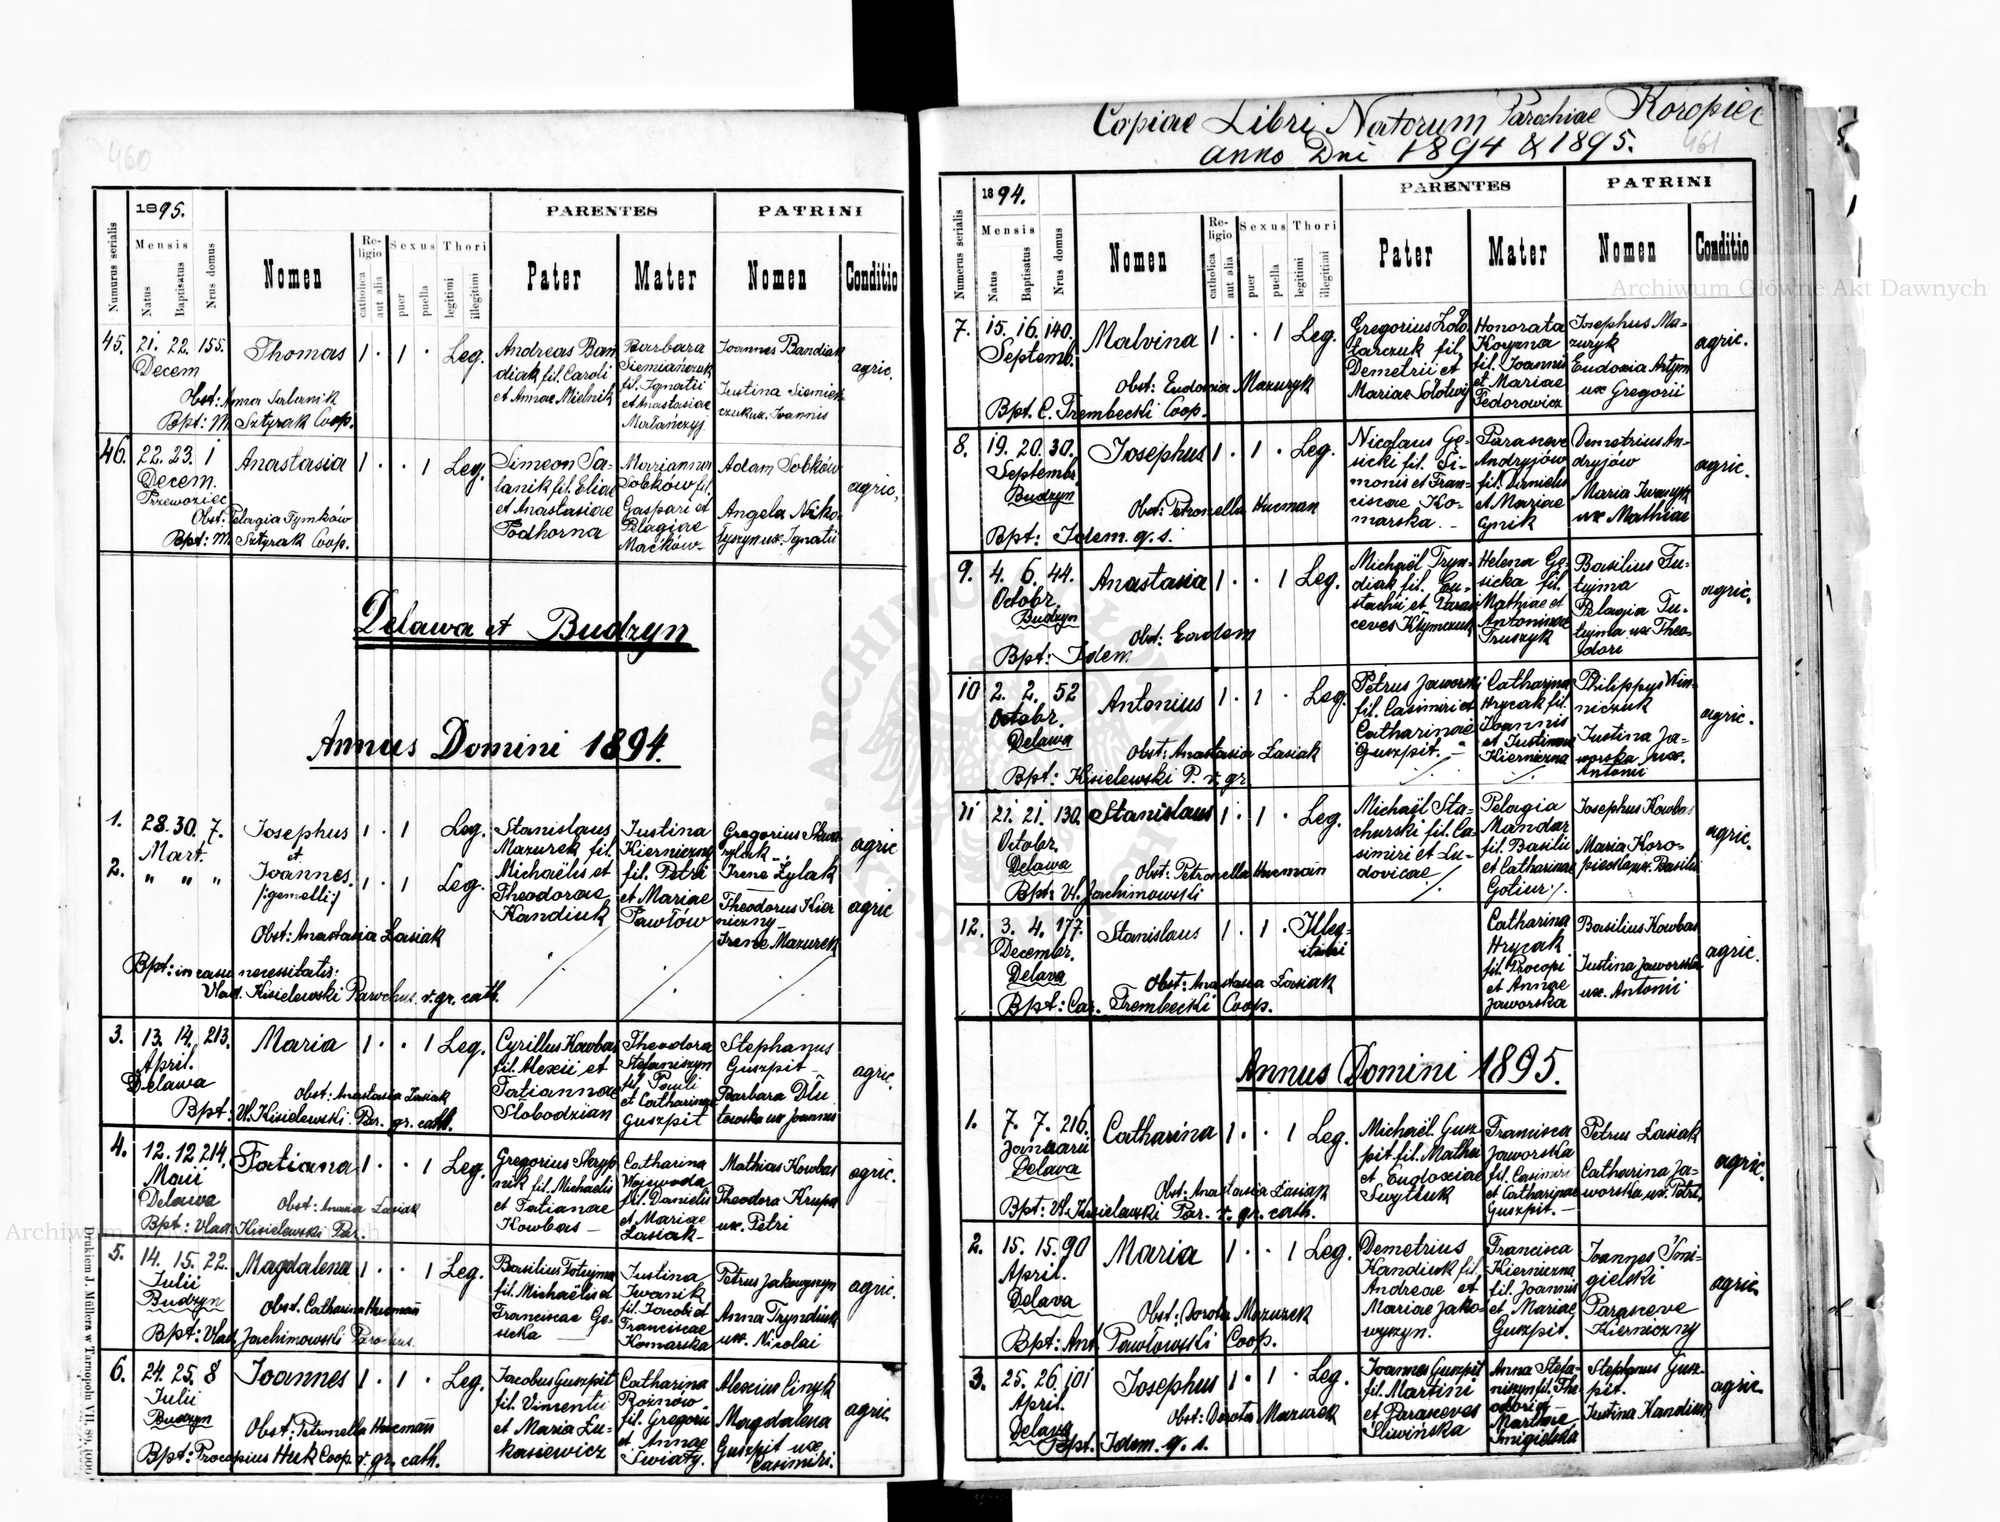 460
1895.
PARENTES
PATRINI
Numurus serialis
Mensis
Natus
Baptisatus
Nrus domus
Nomen
Religio
catholica
aut alia
Sexus
puer
puella
Thori
legitimi
illegitimi
Pater
Mater
Nomen
Conditio
45. 21. 22. 155. Thomas 1 · 1 · Leg.
Decem
Andreas Ban
diak fil. Caroli
et Annae Mielnik
Barbara
Siemiańczuk
fil. Ignatii
et Anastasiae
Joannes Bandiak
Justina Siemień
czuk ux. Joannis
agric.
Obst: Anna Salanik
Bpt: M. Sztyrak Coop.
46. 22. 23. 1 Anastasia 1 · · 1 Leg.
Decem.
Przewoziec
Simeon Sa-
lanik fil. Eliae
et Anastasiae
Podhorna
Marianna
Sobków fil.
Gaspari et
Pelagiae
Maćków
Adam Sobków
Angela Niko-
łyszyn ux. Ignatii
agric.
Obst: Pelagia Tymków
Bpt: M. Sztyrak Coop.
Delawa et Budzyn
Annus Domini 1894.
1. 28. 30. 7. Josephus 1 · 1 Leg.
Mart. et
2. " " " Joannes. 1 · 1 Leg.
/:gemelli:/
Stanislaus
Mazurek fil.
Michaëlis et
Theodorae
Kandiuk
Justina
Kierniczny
fil. Petri
et Mariae
Pawłów
Gregorius
Irene Zylak
Theodorus Kier
niczny
Irene Mazurek
agric
agric
Obst: Anastasia Łasiak
Bpt: in casu necessitatis:
Vlad. Kisielewski Parochus r. gr. cath.
3. 13. 14. 213. Maria 1 · · 1 Leg.
April.
Delawa
Cyrillus Kowbas
fil. Alexii et
Tatiannae
Slobodzian
Theodora
Stefaniszyn
fil. Pauli
et Catharinae
Guszpit
Stephanus
Guszpit
Barbara Dłu
towska ux Joannes
agric.
Obst: Anastasia Łasiak
Bpt: Vl. Kisielewski Par. gr. cath.
4. 12. 12. 214. Tatiana 1 · · 1 Leg.
Maii
Delawa
Gregorius Skryp
nik fil. Michaelis
et Tatianae
Kowbas
Catharina
Wojewoda
fil. Danielis
et Mariae
Łasiak
Mathias Kowbas
Theodora Krupa
ux. Petri
agric.
Obst: Łasiak
Bpt: Vlad. Kisielewski Par.
5. 14. 15. 22. Magdalena 1 · · 1 Leg.
Julii
Budzyn
Basilius Tutyma
fil. Michaëlis et
Franciscae Ge-
sicka
Justina
Iwanik
fil. Jacobi et
Franciscae
Komarska
Petrus Jakowyszyn
Anna Tryndiuk
ux. Nicolai
agric.
Obst. Catharina Hucman
Bpt: Vlad Jachimowski Parochus.
6. 24. 25. 8 Joannes 1 · 1 · Leg.
Julii
Budzyn
Jacobus Guszpit
fil. Vimentii
et Maria Łu-
kasiewicz
Catharina
Roznów
fil. Gregorii
et Annae
Swiaty.
Alexius Cinyk
Magdalena
Guszpit ux
Casimiri.
agric.
Obst: Petronella Hucman
Bpt: Procopius Huk Coop r. gr. cath.
Drukiem J. Müllera w Tarnopolu
Copiae Libri Natorum Parochiae Koropiec
anno Dni 1894 & 1895.
461
1894.
PARENTES
PATRINI
Numerus serialis
Mensis
Natus
Baptisatus
Nrus domus
Nomen
Religio
catholica
aut alia
Sexus
puer
puella
Thori
legitimi
illegitimi
Pater
Mater
Nomen
Conditio
7. 15. 16. 140. Malvina 1 · · 1 Leg.
Septemb.
Gregorius
fil.
Demetrii et
Mariae Solotwij
Honorata
Koryzna
fil. Joannis
et Mariae
Fedorowicz
Josephus Ma-
zuryk
Eudoxia Artym
ux Gregorii
agric.
Obst: Eudoxia Mazuryk
Bpt. C. Trembecki Coop.
8. 19. 20. 30. Josephus 1 · 1 · Leg.
Septembr.
Budzyn
Nicolaus Ge-
sicki fil. Si-
monis et Fran-
ciscae Ko-
marska
Parasceve
Andryjów
fil. Danielis
et Mariae
Cynik
Demetrius An-
dryjów
Maria Iwasyk
ux Mathiae
agric.
Obst: Petronella Hucman
Bpt: Idem. q. s.
9. 4. 6. 44. Anastasia 1 · · 1 Leg.
Octobr.
Budzyn
Michaël Tryn-
diak fil. Eu-
stachii et Paras
ceves Klymczuk
Helena Ge-
sicka fil.
Mathiae et
Antoninae
Truszyk
Basilius Tu-
tyma
Pelagia Tu-
tyma ux Theo-
dori
agric.
Obst: Eadem
Bpt: Idem
10 2. 2. 52 Antonius 1 · 1 · Leg.
Octobr.
Delawa
Petrus Jaworski
fil. Casimiri et
Catharinae
Guszpit.
Catharina
Hrycak fil.
Joannis
et Justinae
Kierniczna
Philippus Win-
niczuk
Justina Ja-
worska ux.
Antonii
agric.
Obst: Anastasia Łasiak
Bpt: Kisielewski P. r. gr
11 21. 21. 130. Stanislaus 1 · 1 · Leg.
Octobr.
Delawa
Michaël Sta-
churski fil. Ca-
simiri et Lu-
dovicae
Pelagia
Mandar
fil. Basilii
et Catharinae
Gotiur
Josephus Kowbas
Maria Koro-
piecka ux. Basilii
agric.
Obst: Petronella Hucman
Bpt: Vl. Jachimowski
12. 3. 4. 177. Stanislaus 1 · 1 · Illeg-
Decembr.
Delava
Catharina
Hrycak
fil. Procopi
et Annae
Jaworska
Basilius Kowbas
Justina Jaworska
ux. Antonii
agric.
Obst: Anastasia Łasiak
Bpt: Car. Trembecki Coop.
Annus Domini 1895.
1. 7. 7. 216. Catharina 1 · · 1 Leg.
Januarii
Delava
Michaël Gusz
pit fil. Mathii
et Eugdoxiae
Swytluk
Francisca
Jaworska
fil. Casimiri
et Catharinae
Guszpit.
Petrus Łasiak
Catharina Ja-
worska ux. Petri
agric.
Obst: Anastasia Łasiak
Bpt: Vl. Kisielewski Par. r. gr. cath.
2. 15. 15. 90 Maria 1 · · 1 Leg.
April.
Delava
Demetrius
Kandiuk fil.
Andreae et
Mariae Jako-
wyszyn.
Francisca
Kierniczna
fil. Joannis
et Mariae
Guszpit.
Joannes Smi-
gielski
Parasceve
Kierniczny
agric.
Obst: Dorota Mazurek
Bpt: Ant. Pawłowski Coop.
3. 25. 26. 101 Josephus 1 · 1 · Leg.
April.
Delava
Joannes Guszpit
fil. Martini
et Parasceves
Sliwińska
Anna Stefa-
niszyn fil. The
odori et
Mariae
Smigielska
Stephanus Gusz-
pit.
Justina Kandiuk
agric.
Obst: Dorota Mazurek
Bpt. Idem. q. s.
Archiwum Główne Akt Dawnych